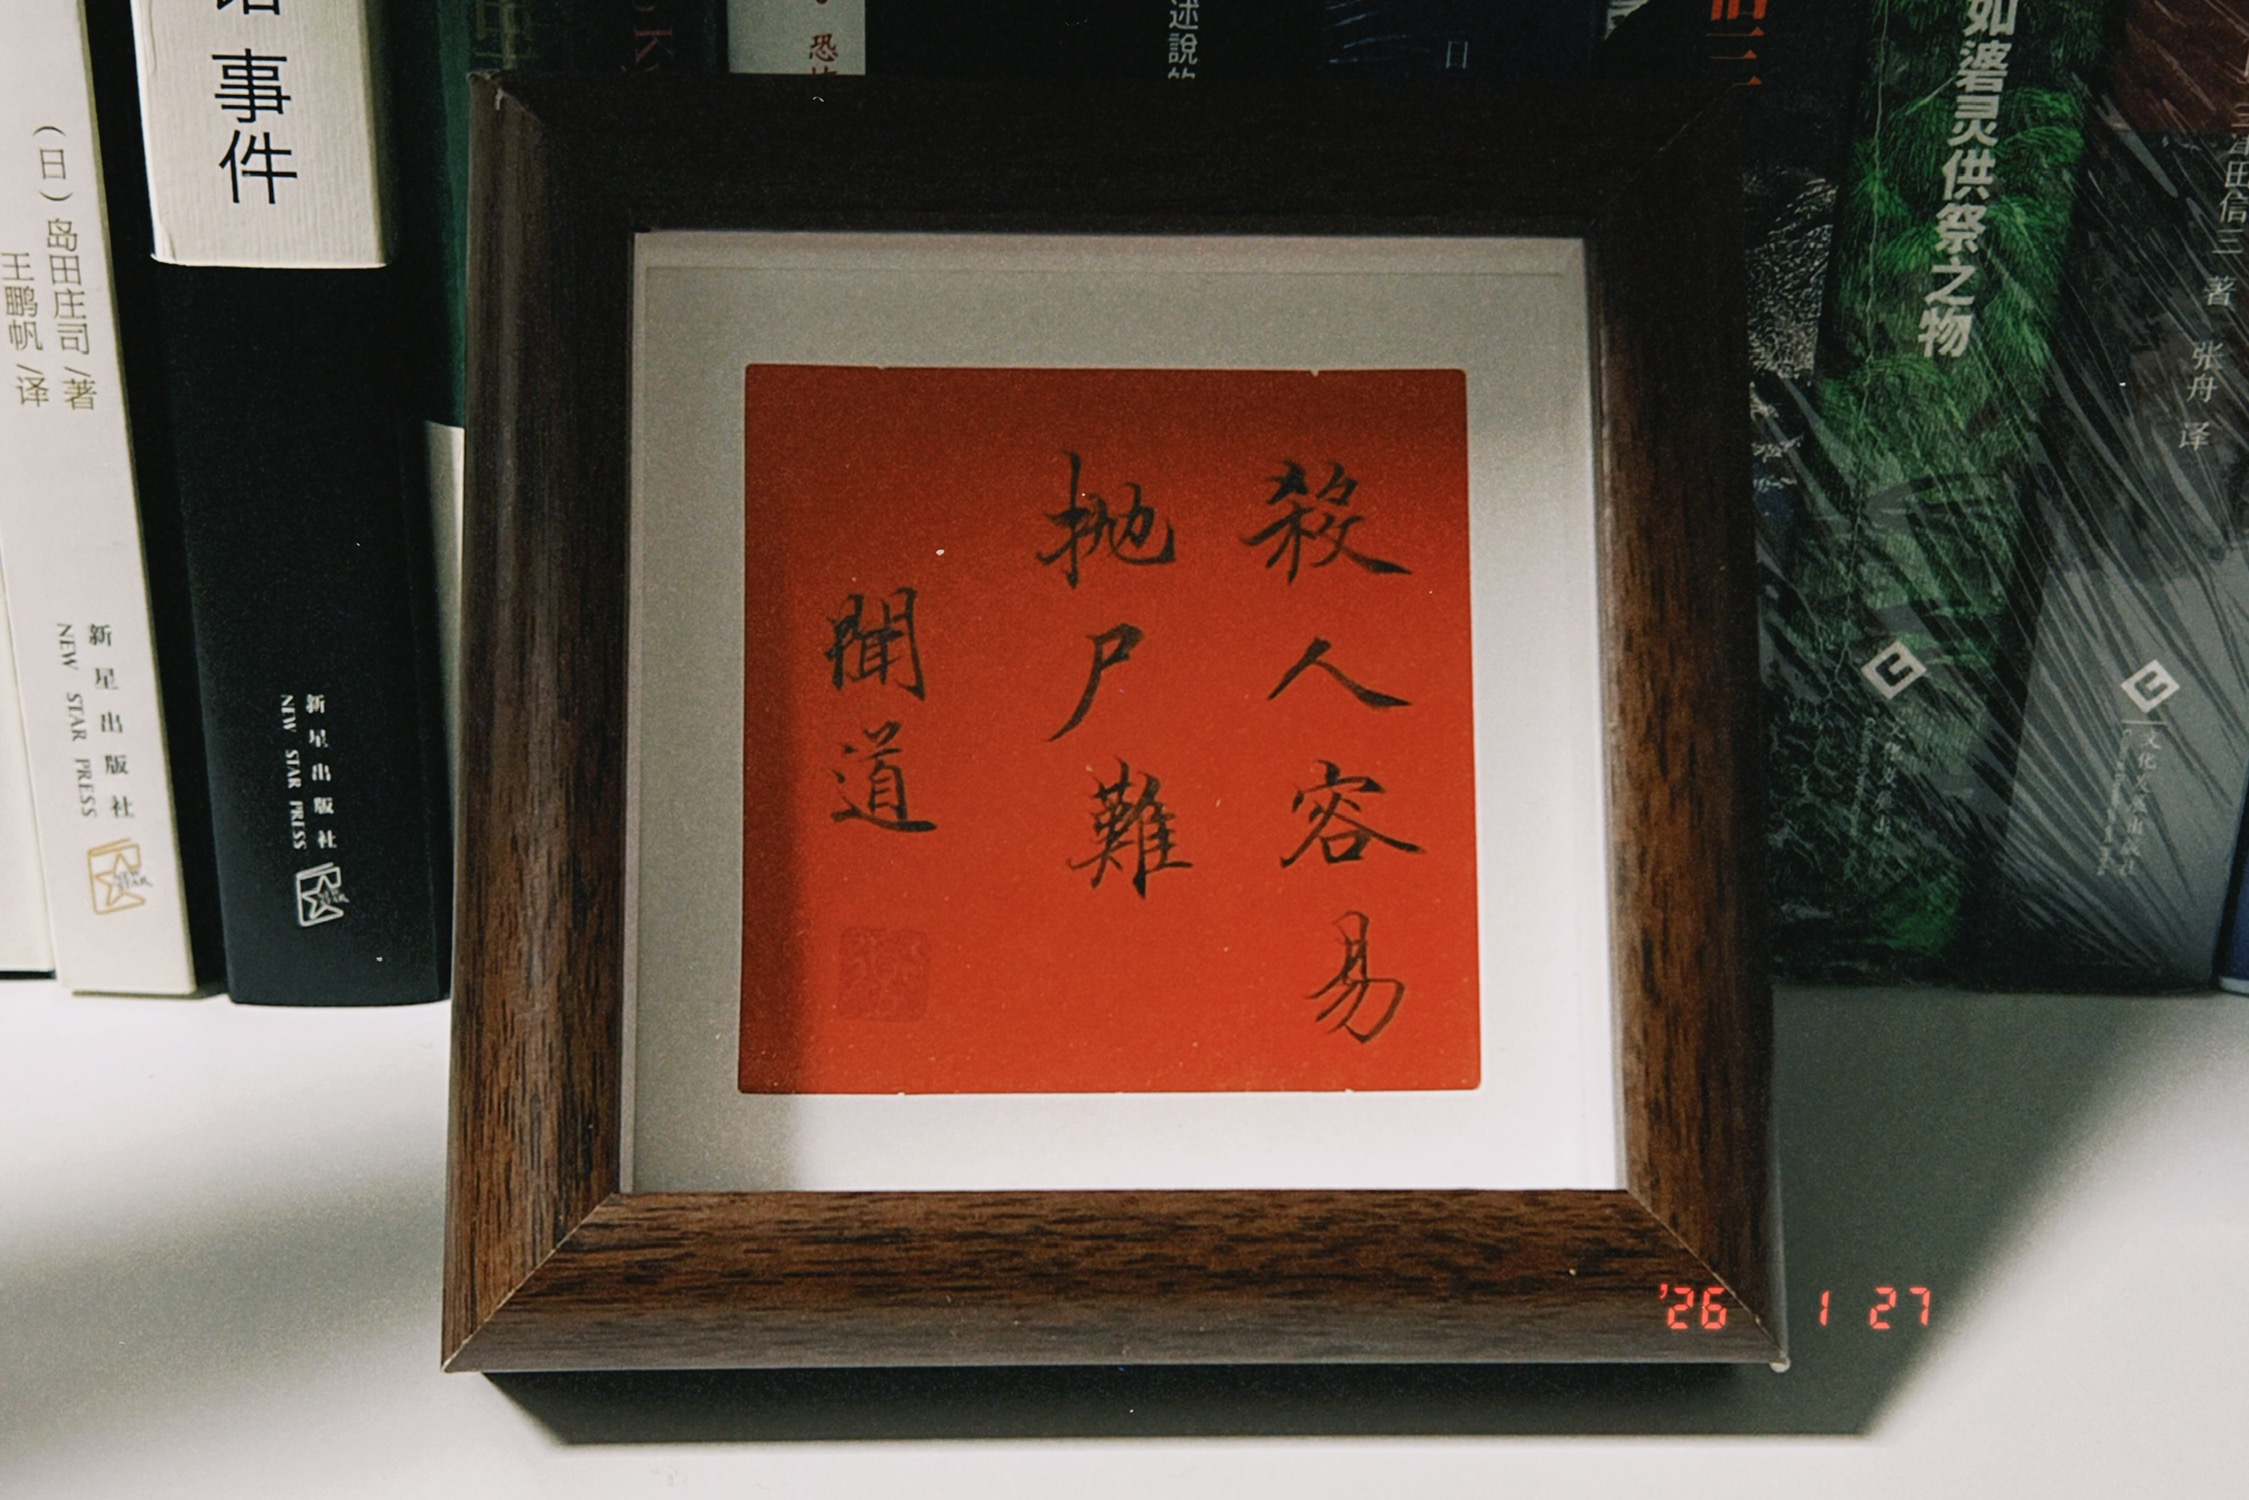 殺人容易
抛尸難
聞道
事件
(日)岛田庄司/著
王鹏帆/译
新星出版社
NEW STAR PRESS
新星出版社
NEW STAR PRESS
恐
述說的
日
三
如碆灵供祭之物
三津田信三 著
张舟 译
'26 1 27